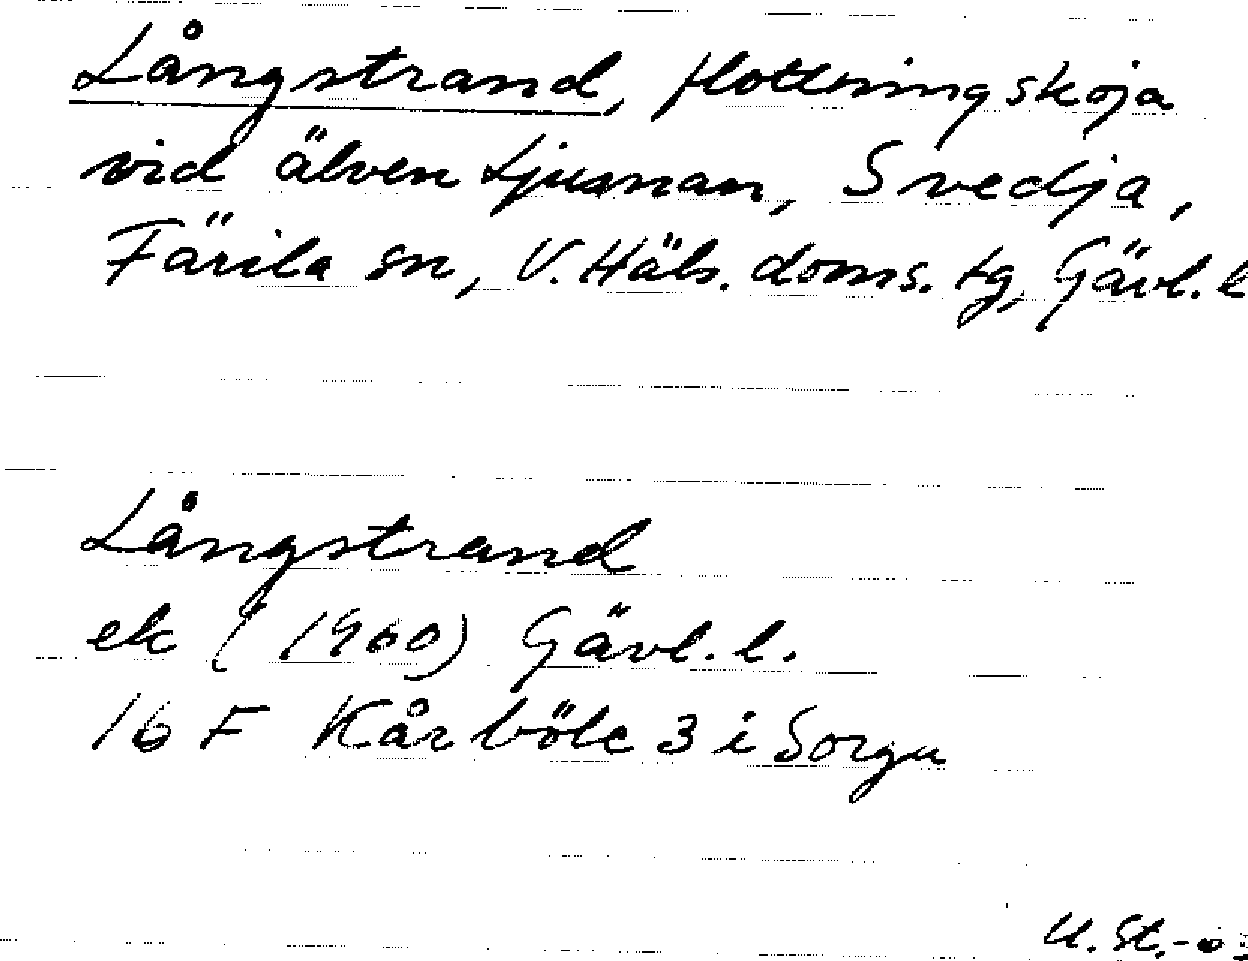 Långstrand, flottningskoja
vid älven Ljusnan, Svedja,
Färila sn, V. Häls. doms. tg, Gävl. l
Långstrand
ek (1960) Gävl. l.
16 F Kårböle 3 i Sorgu
U. St.-0